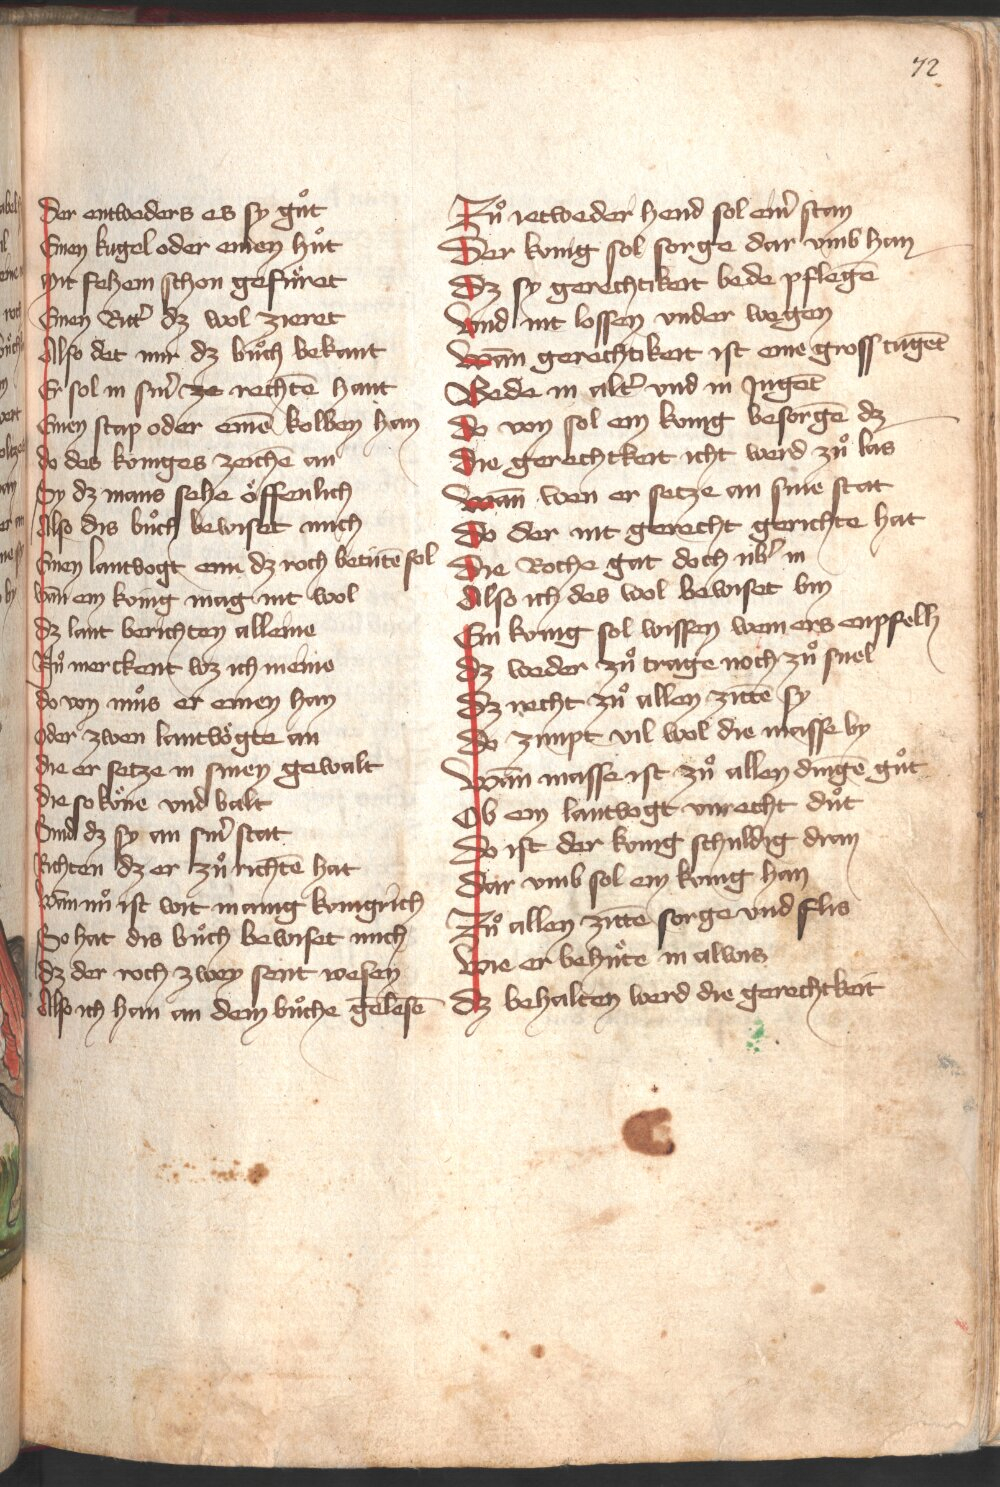 72
Der entweders es sy guͦt
Einen kugel oder einen huͦt
Mit fehem schon gefuͤret
Einen Ritt̉ dz wol zieret
Also det mir dz buͦch bekant
Er sol in sin̉ ze rechtē hant
Einen stap oder einē kolben han
do des koniges zeichē an
Sy dz mans sehe oͤffenlich
Also dis buͦch bewiset mich
Einen lantvogt eim dz roch betutē sol
wan ein konig mag nit wol
dz lant berichten alleine
Nuͦ merckent wz ich meine
do von muͦs er einen han
oder zwen lantvoͤgte an
die er setze in sinen gewalt
die so koͤne vnd balt
Sind dz sy an sin̉ stat
Richten dz er zuͦ richtē hat
Wān nuͦ ist wit manig konigrich
So hat dis buͦch bewiset mich
dz der roch zwen sint wesen
Also ich han an dem buͦche gelesē
Zuͦ ietweder hend sol ein̉ stan
Der konig sol sorge dar vmb han
Dz sy gerechtikeit bede pflegē
Vnd nit lossen vnder wegen
Wān gerechtikeit ist eine gross tugēt
Bede in alt̉ vnd in Jugēt
Do von sol ein konig besorgē dz
Die gerechtkeit icht werd zuͦ las
Wān wen er setze an sine stat
Do der nit gerecht gerichte hat
Die Roche gat doch vb̉ in
Also ich des wol bewiset bin
Ein konig sol wissen wem ers enpfelh
Dz weder zuͦ trage noch zuͦ snel
Dz recht zuͦ allen zittē sy
Do zimpt vil wol die masse by
Wān masse ist zuͦ allen dingē guͦt
Ob ein lantvogt vnrecht duͦt
Do ist der konig schuldig dran
Dar vmb sol ein konig han
Zuͦ allen zittē sorge vnd flis
Wie er behuͤte in alwis
Dz behalten werd die gerechtkeit